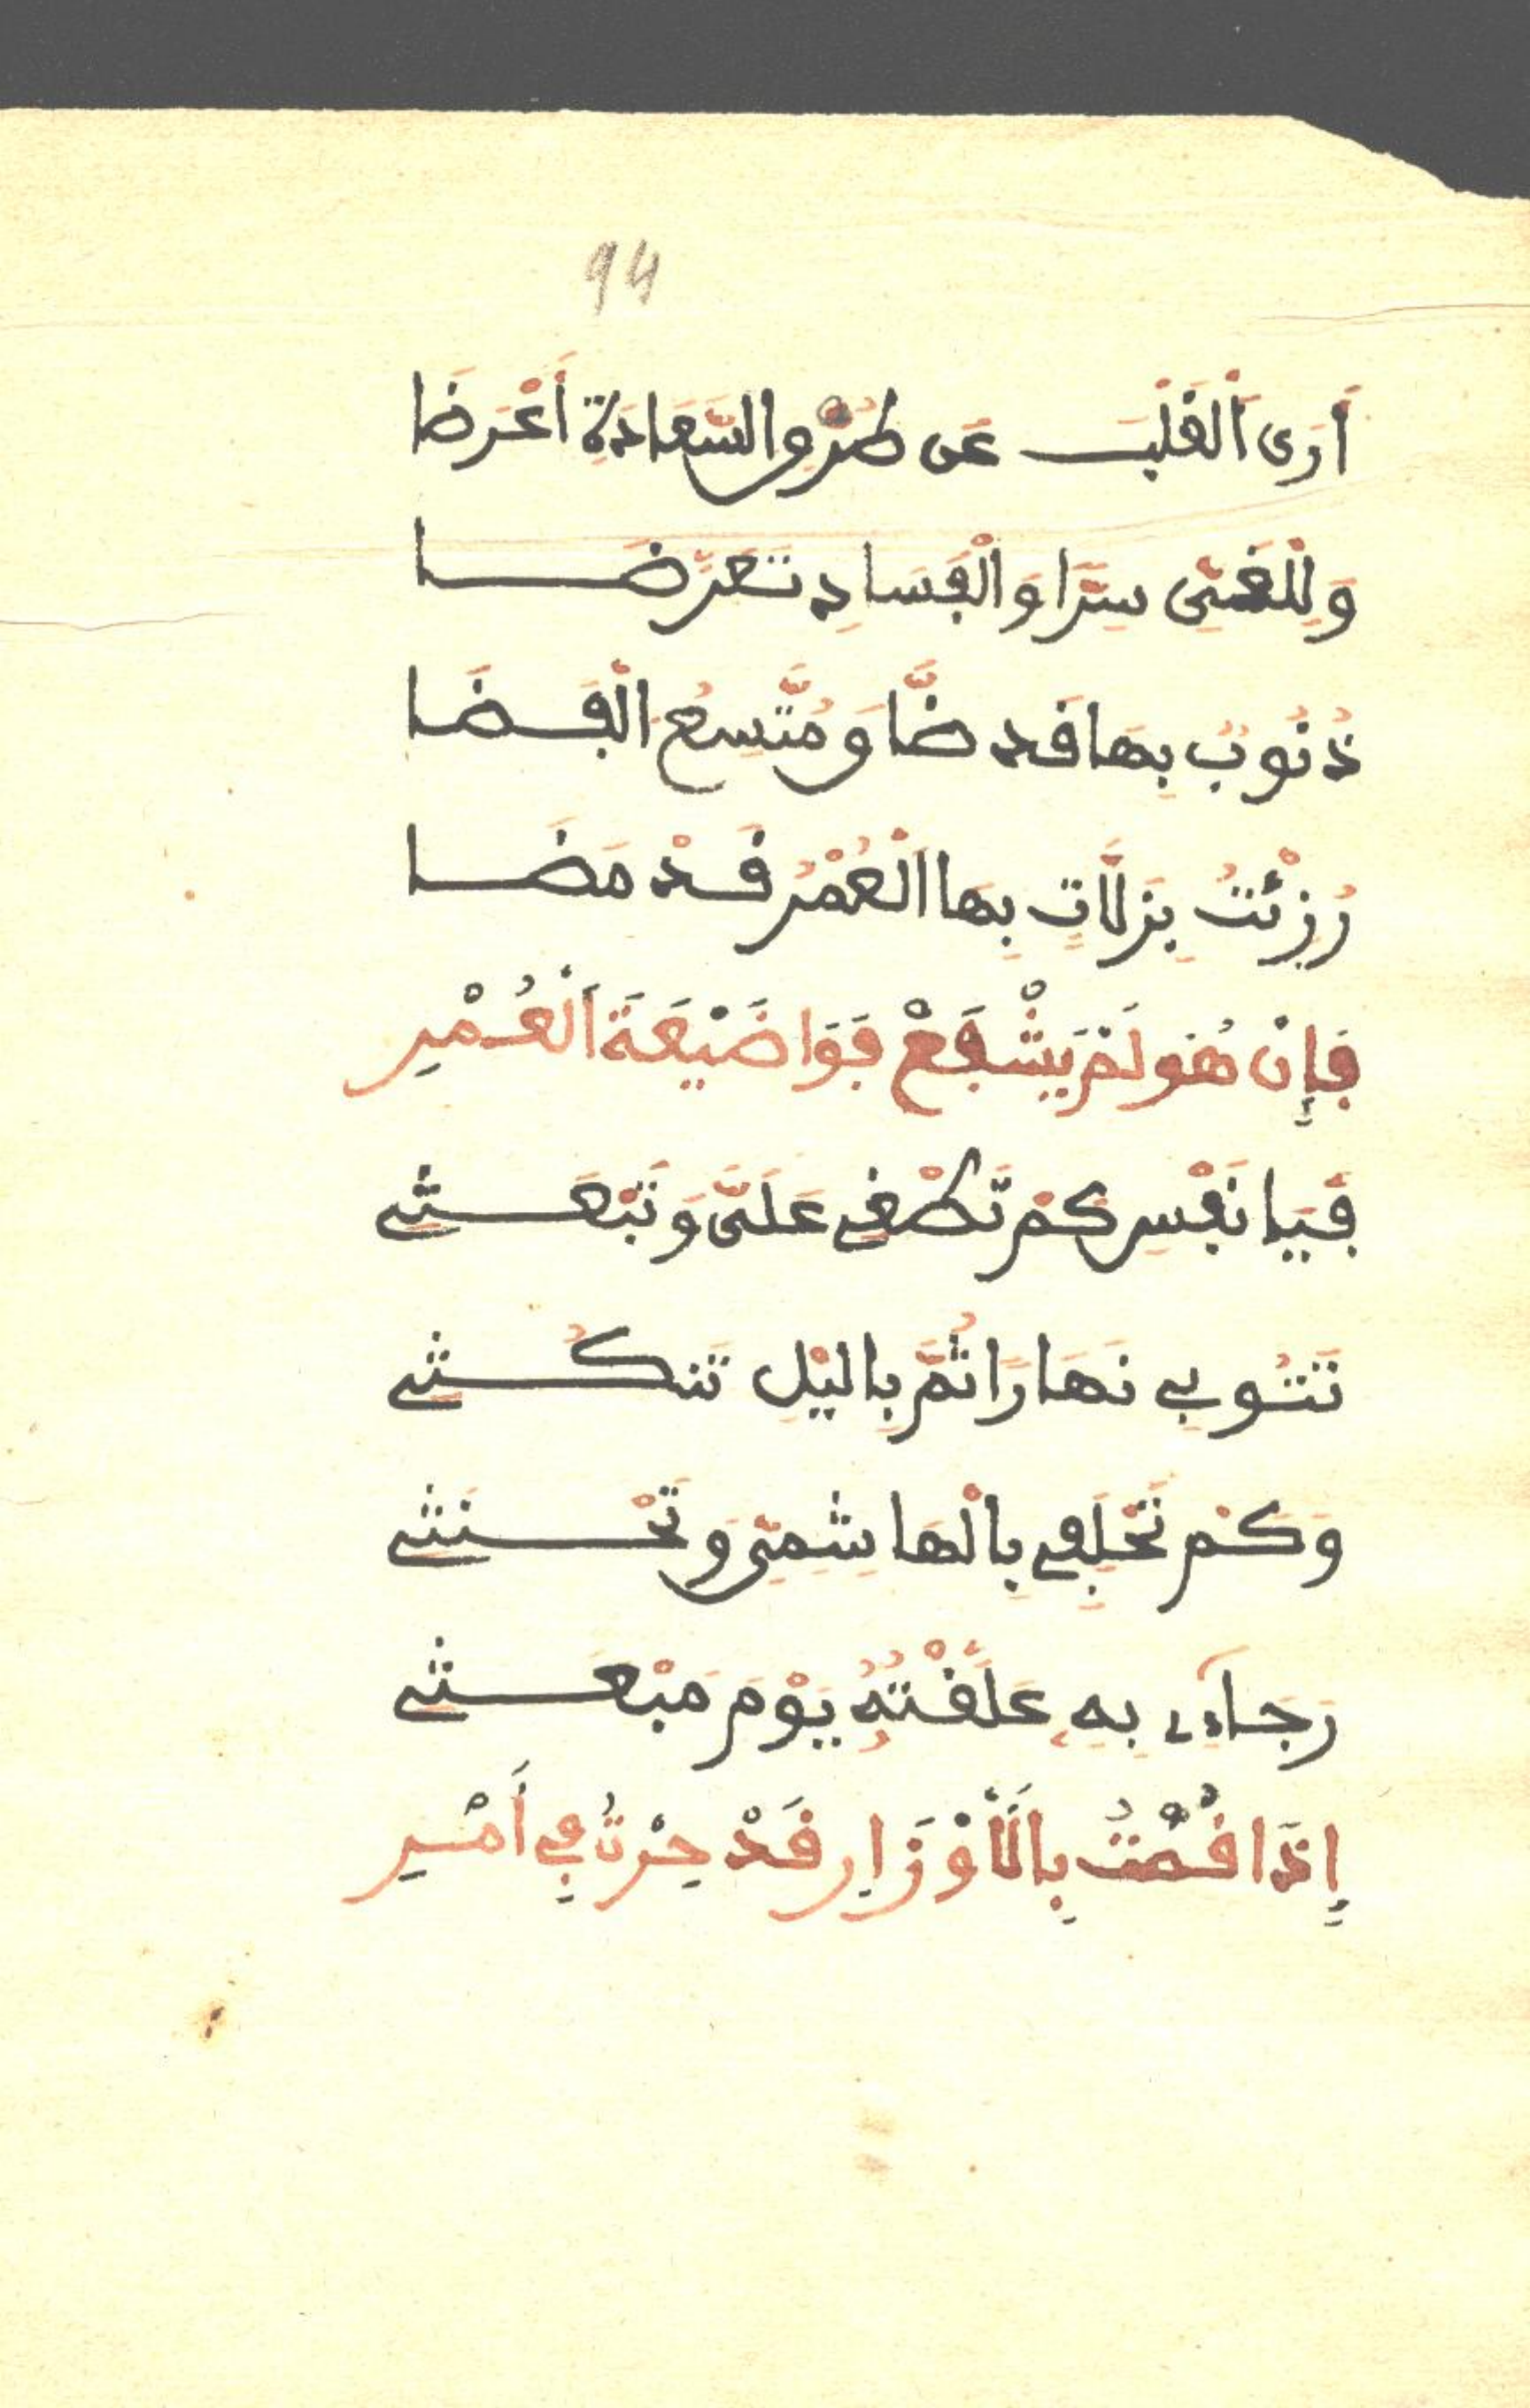 94
أَرَى اَلْقَلْبَ عَن طُرْقِ السَّعَادَةِ أَعْرَضَا
وَلِلْغَيِّ سِرًّا وَالْفَسَادِ تَعَرَّضَا
ذُنُوبٌ بِهَا قَد ضَّاقَ مُتَّسِعُ الْفَضَا
رُزِئْتُ بِزَلَّاتٍ بِهَا اَلْعُمْرُ قَدْ مَضَا
فَإِنْ هُوَ لَمْ يَشْفَعْ فَوَا ضَيْعَةَ اَلْعُمْرِ
فَيَا نَفْسِ كَمْ تَطْغِي عَلَيَّ وَتَبْعَثِي
تَتُوبِي نَهَارًا ثُمَّ بِاليْلِ تَنكُثِي
وَكَمْ تَحْلِفِي بِالْهَاشِمِيِّ وَتَحْنَثِي
رَجَآءِى بِهِ عَلَّقْتُهُ يَوْمَ مَبْعَثِي
إِذَا قُمْتُ بِالَأَوْزَارِ قَدْ حِرْتُ فِي أَمْرِ